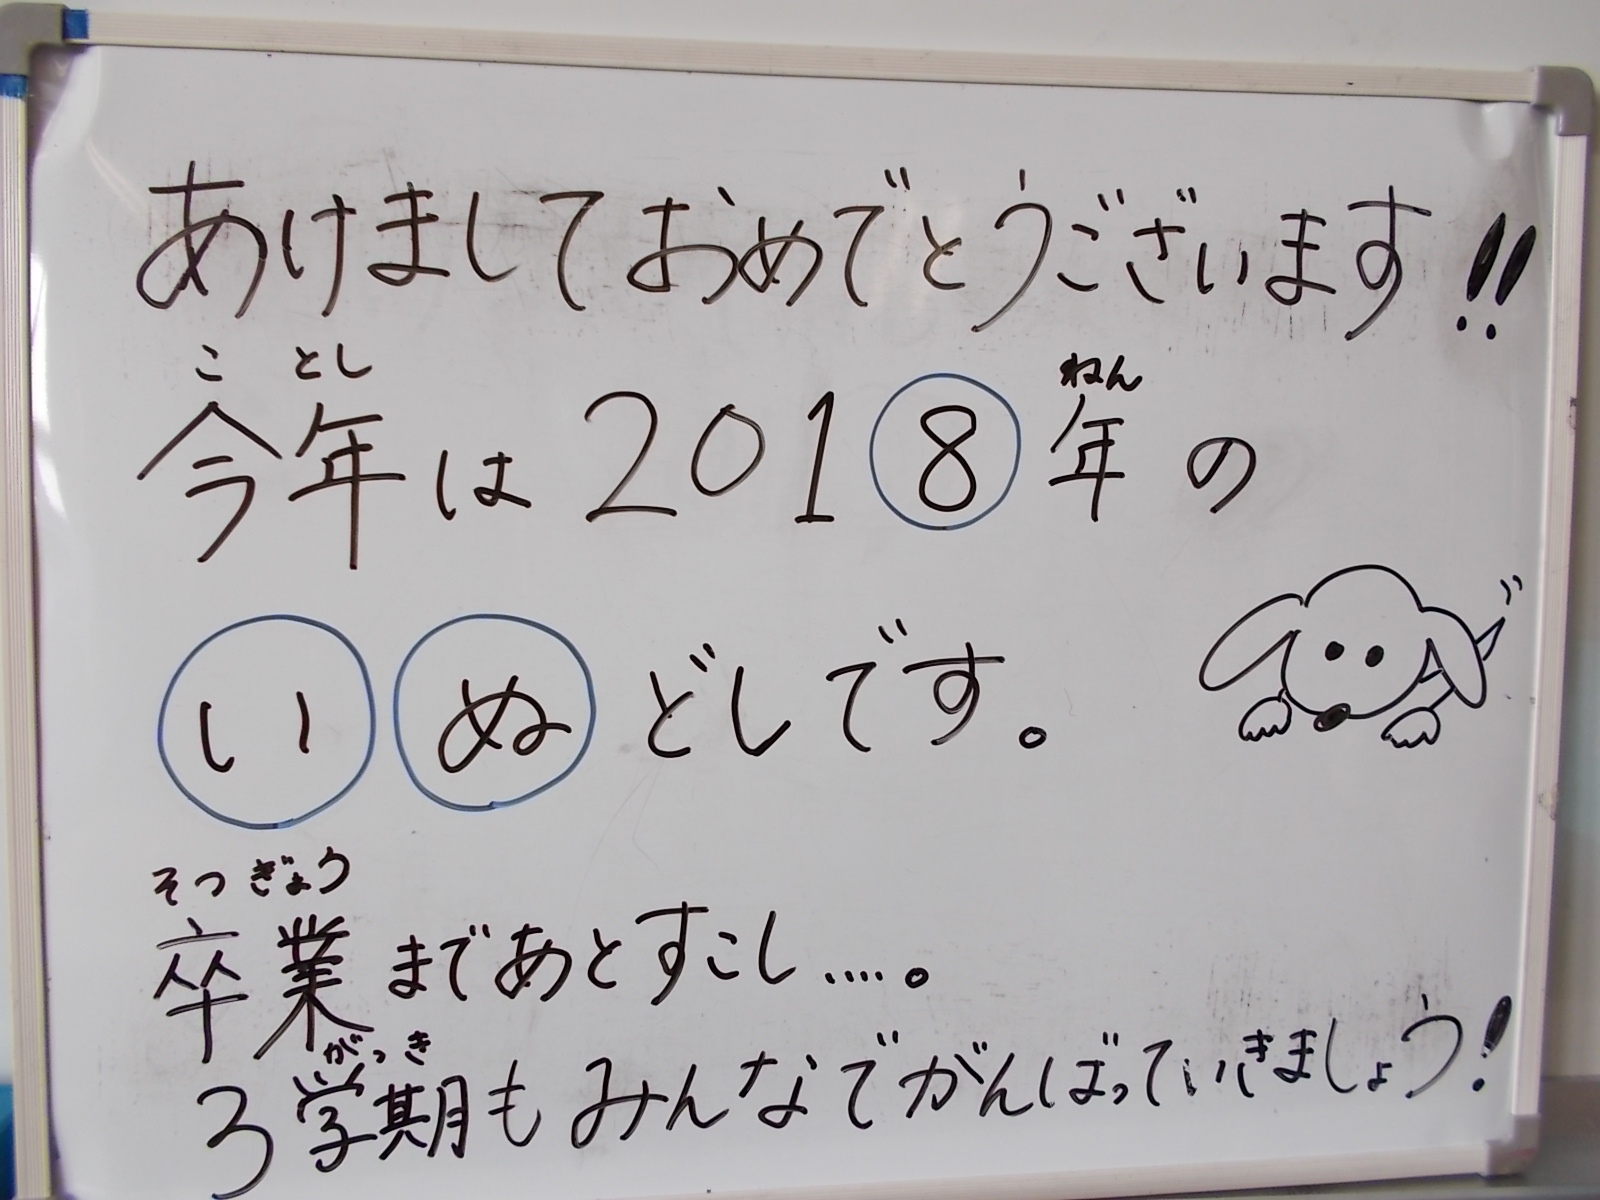 あけましておめでとうございます!!
ことし ねん
今年は2018年の
いぬどしです。
そつぎょう
卒業まであとすこし....。
がっき
3学期もみんなでがんばっていきましょう!